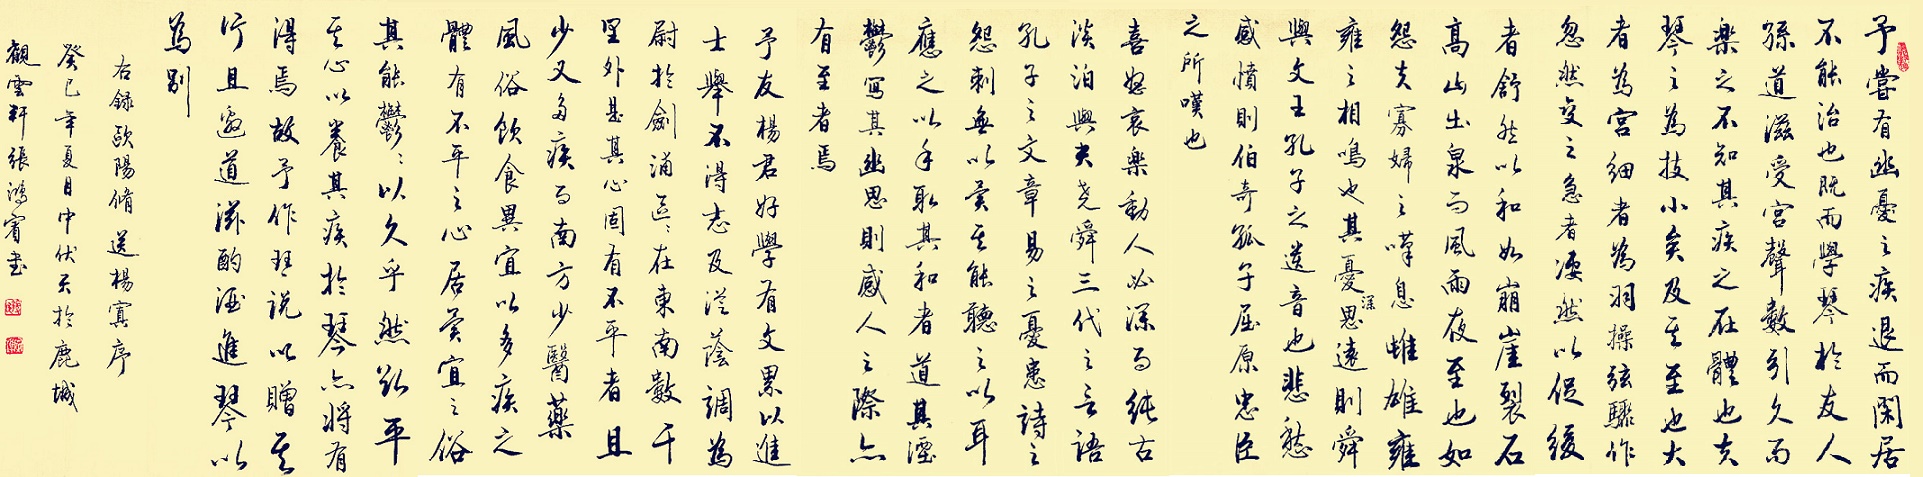 予嘗有幽憂之疾退而閑居
不能治也既而學琴於友人
孫道滋受宮聲數引久而
樂之不知其疾之在體也夫
琴之為技小矣及其至也大
者為宮細者為羽操弦驟作
忽然變之急者凄然以促緩
者舒然以和如崩崖裂石
高山出泉而風雨夜至也如
怨夫寡婦之嘆息雌雄雍
雍之相鳴也其憂深思遠則舜
與文王孔子之遺音也悲愁
感憤則伯奇孤子屈原忠臣
之所嘆也
喜怒哀樂動人必深而純古
淡泊與夫堯舜三代之言語
孔子之文章易之憂患詩之
怨刺無以異其能聽之以耳
應之以手取其和者道其湮
鬱寫其幽思則感人之際亦
有至者焉
予友楊君好學有文累以進
士舉不得志及從蔭調為
尉於劍浦區區在東南數千
里外是其心固有不平者且
少又多疾而南方少醫藥
風俗飲食異宜以多疾之
體有不平之心居異宜之俗
其能鬱鬱以久乎然欲平
其心以養其疾於琴亦將有
得焉故予作琴說以贈其
行且邀道滋酌酒進琴以
為別
右錄歐陽脩送楊寘序
癸巳年夏日中伏天於鹿城
觀雲軒張鴻賓書